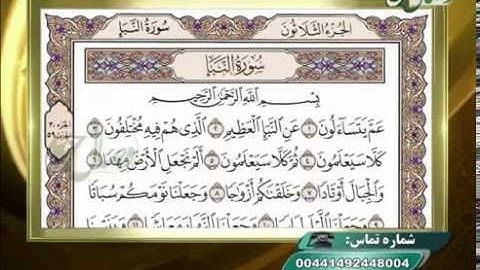 سُورَةُ النَّبَإِ
الجُزءُ الثَّلَاثُونَ
سُورَةُ النَّبَإِ
بِسْمِ اللَّهِ الرَّحْمَٰنِ الرَّحِيمِ
عَمَّ يَتَسَاءَلُونَ ١ عَنِ النَّبَإِ الْعَظِيمِ ٢ الَّذِي هُمْ فِيهِ مُخْتَلِفُونَ ٣
كَلَّا سَيَعْلَمُونَ ٤ ثُمَّ كَلَّا سَيَعْلَمُونَ ٥ أَلَمْ نَجْعَلِ الْأَرْضَ مِهَادًا ٦
وَالْجِبَالَ أَوْتَادًا ٧ وَخَلَقْنَاكُمْ أَزْوَاجًا ٨ وَجَعَلْنَا نَوْمَكُمْ سُبَاتًا
٩ وَجَعَلْنَا
شماره تماس:
00441492448004